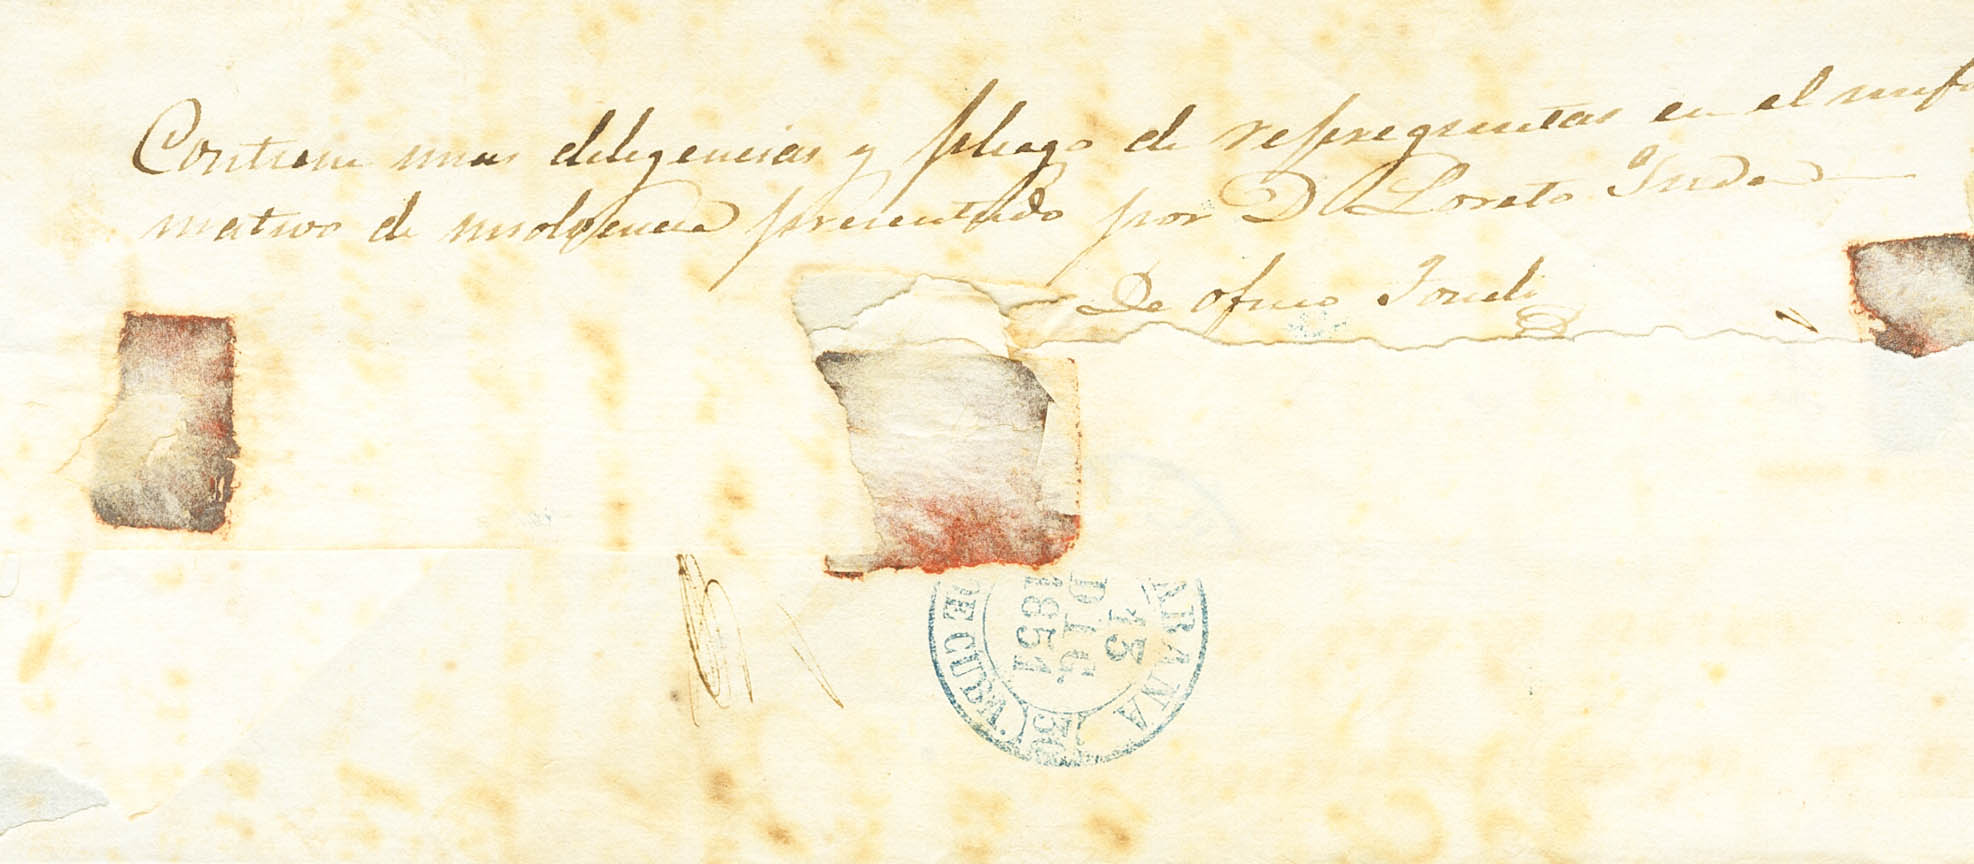 Contiene unas diligencias y pliego de repreguntas en el infor
mativo de insolvencia presentado por D. Loreto
De oficio
HABANA
13
DIC
1851
DE CUBA